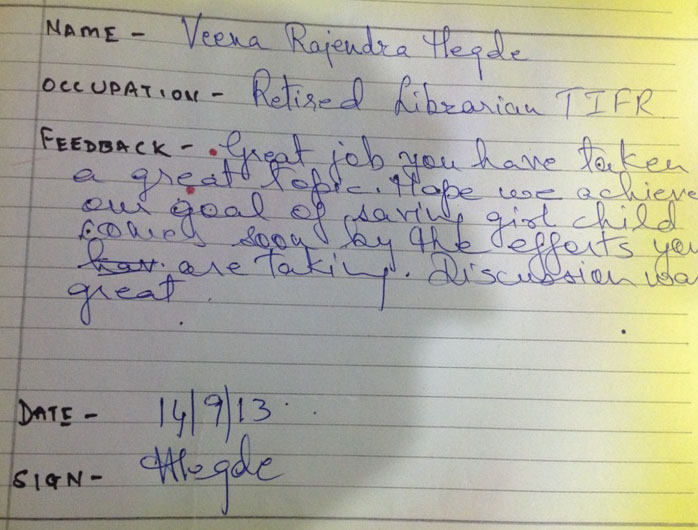 NAME - Veena Rajendra Hegde
OCCUPATION - Retired Librarian TIFR
FEEDBACK - Great job you have taken
a great topic. Hope we achieve
our goal of saving girl child
comes soon by the efforts you
hav. are taking. Discussion was
great.
DATE - 14/9/13
SIGN - Hegde